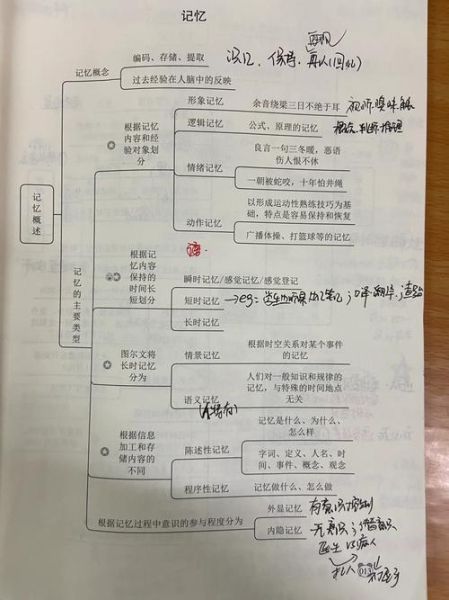 记忆
编码、存储、提取
识记、保持、再认(回忆)
再现
记忆概念
过去经验在人脑中的反映
形象记忆
余音绕梁三日不绝于耳
视听嗅味触
逻辑记忆
公式、原理的记忆
概念、判断、推理
根据记忆
内容和经
验对象划
分
良言一句三冬暖，恶语
伤人恨不休
情绪记忆
一朝被蛇咬，十年怕井绳
以形成运动性熟练技巧为基
础，特点是容易保持和恢复
动作记忆
广播体操、打篮球等的记忆
记忆概述
记忆的主要类型
根据记
忆内容
保持的
时间长
短划分
瞬时记忆/感觉记忆/感觉登记
短时记忆
→eg:
长时记忆
图尔文将
长时记忆
分为
情景记忆
根据时空关系对某个事件
的记忆
人们对一般知识和规律的
记忆，与特殊的时间地点
无关
语义记忆
根据信息
加工和存
储内容的
不同
陈述性记忆
记忆是什么、为什么、
怎么样
字词、定义、人名、时
间、事件、概念、观念
程序性记忆
记忆做什么、怎么做
根据记忆过程中意识的参与程度分为
外显记忆
有意识
内隐记忆
无意识
医生
病人